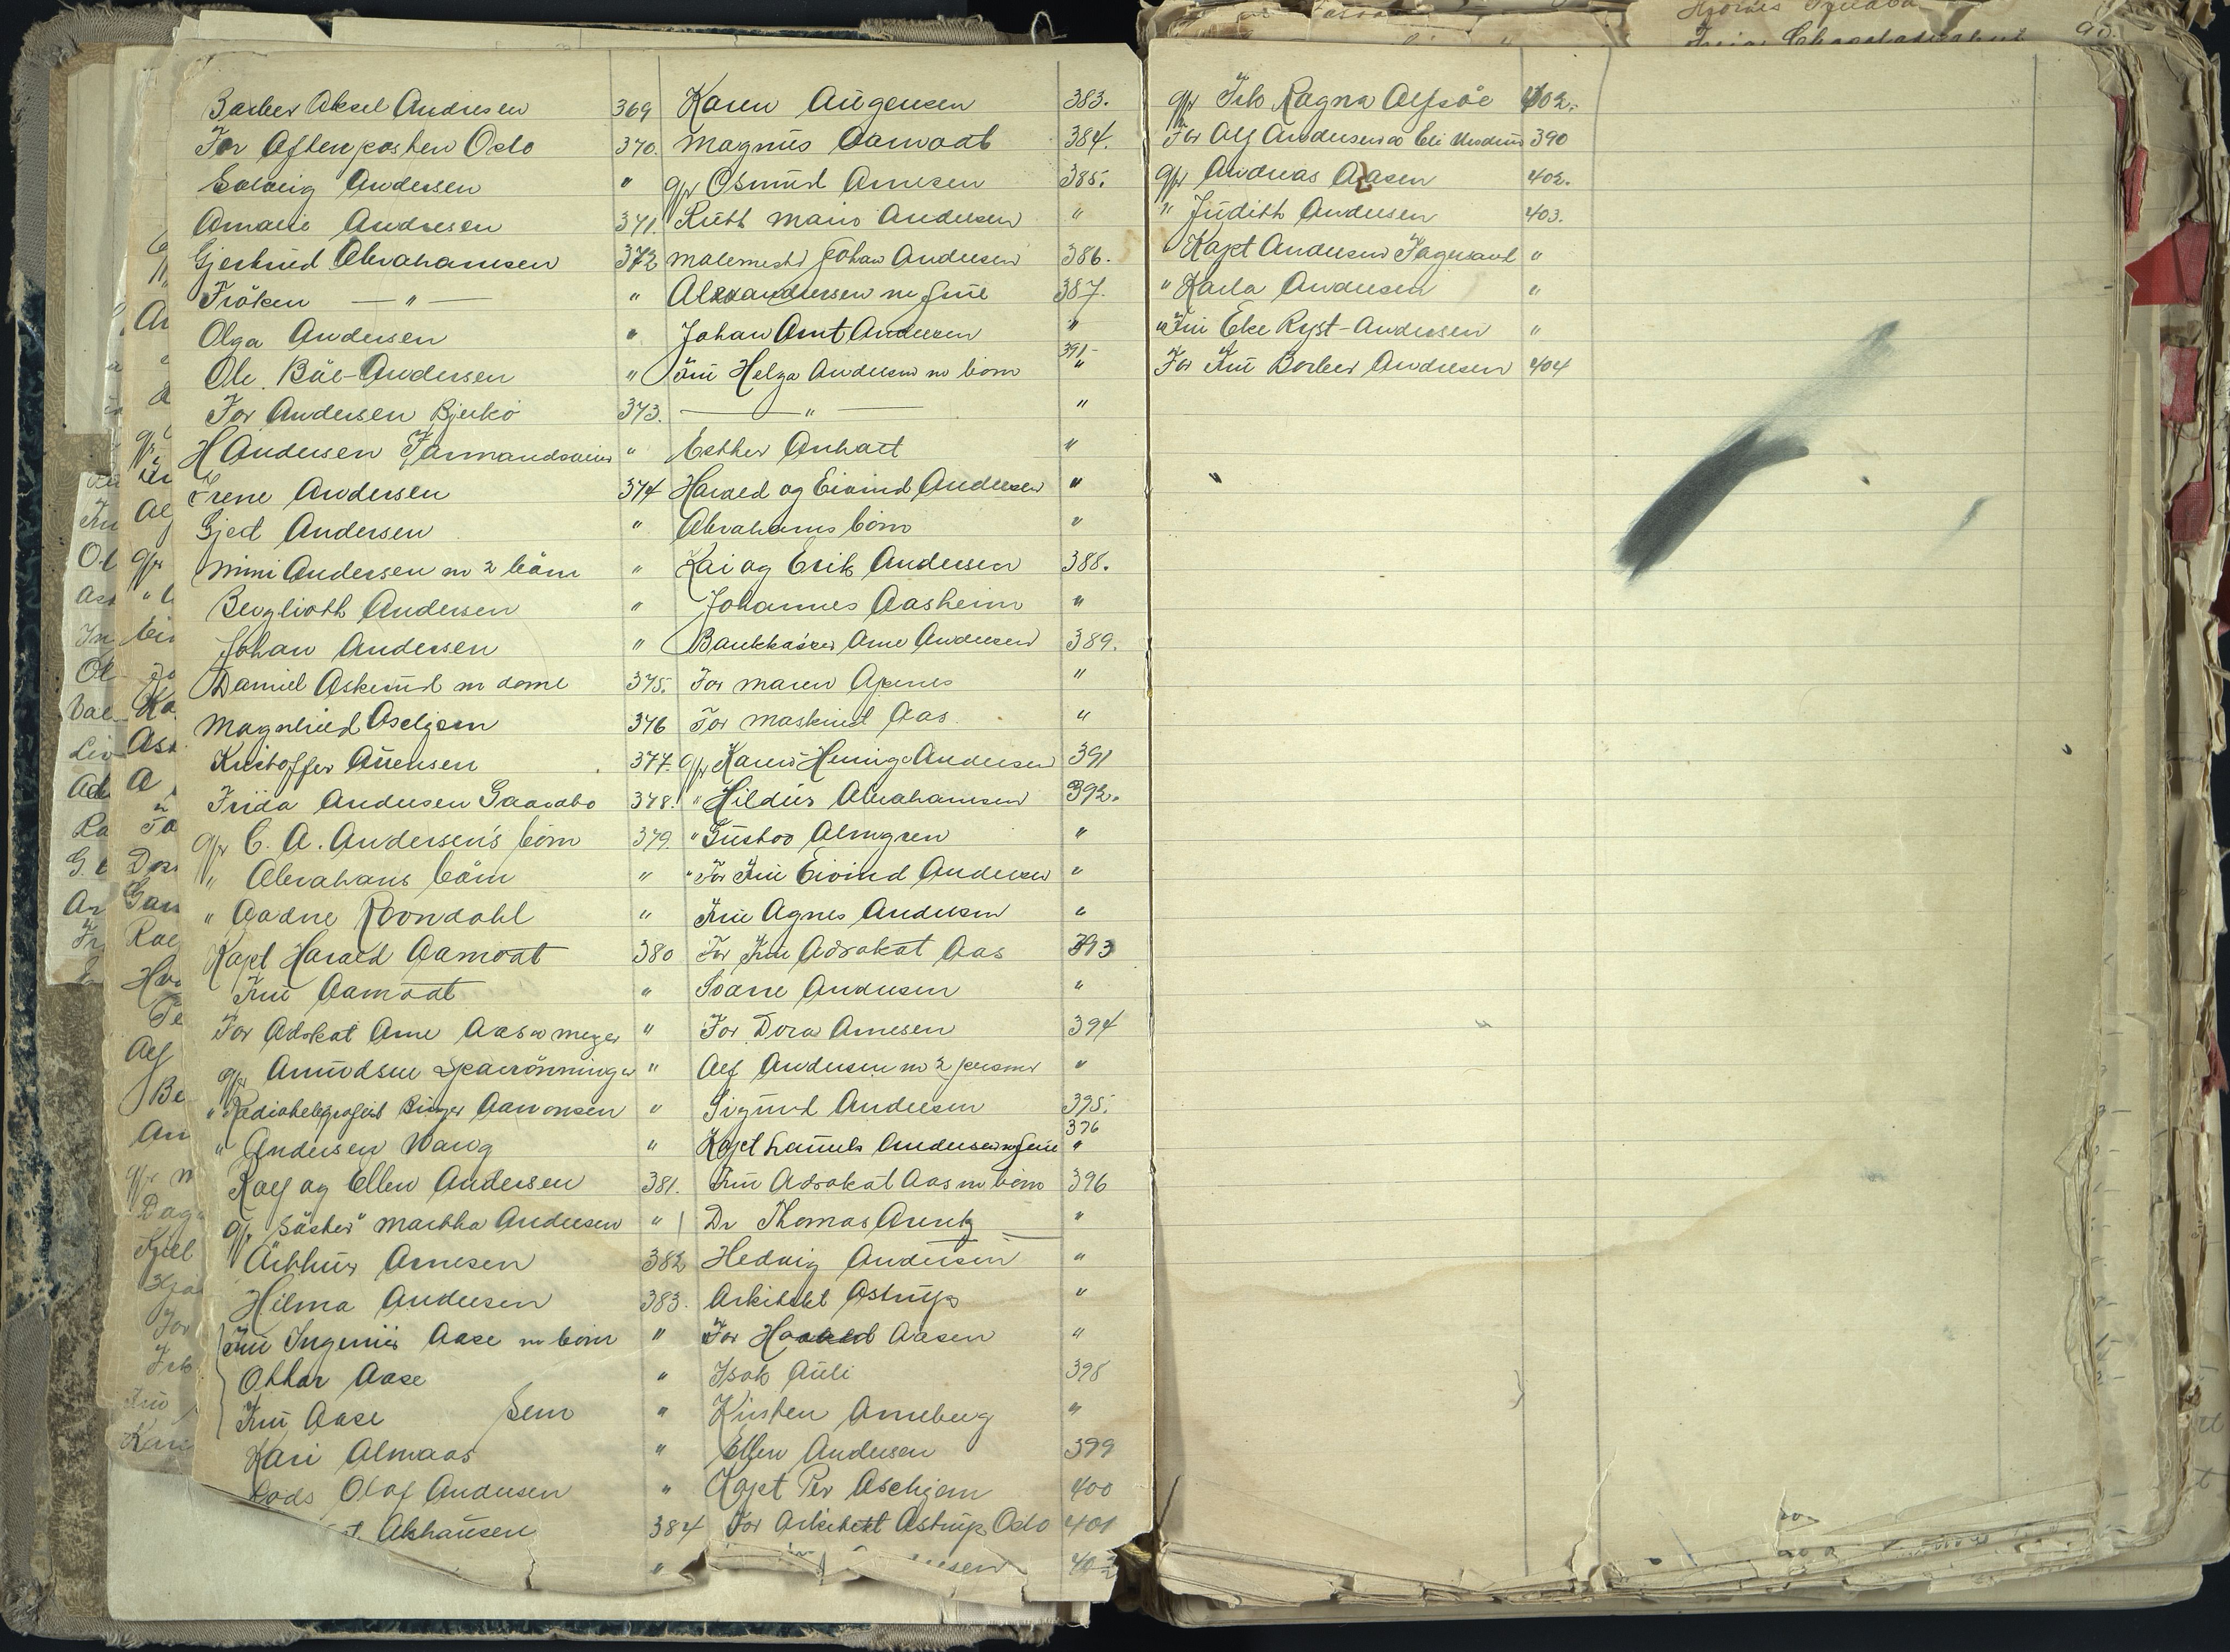 Barber Aksel Andresen 369
For Aftenposten Oslo 370.
Solveig Andersen "
Amalie Andresen 371.
Gjertrud Abrahamsen 372
Fröken — " — "
Olga Andersen "
Ole Bäe-Andersen "
For Andersen Bjerkö 373.
H Andersen Farmandsveien "
Irene Andersen 374
Gjert Andersen "
Mimi Andersen m 2 börn "
Berglioth Andersen "
Johan Andersen "
Daniel Askerud m dame 375.
Magnhild Aschjem 376
Kristoffer Auensen 377.
Frida Andersen Gaarabo 378.
gfr C. A. Andersen's börn 379.
" Abrahams börn "
" Aadne Roondahl "
Kapt Harald Aamodt 380
Fru Aamodt "
For Adokat Arne Aas
gfr Amundsen "
" Radiotelegrafist Birger Aaronsen "
" Andersen Wang "
Ralf og Ellen Andersen 381.
gfr "Söster" Martha Andersen "
Arthur Arnesen 382
Hilma Andersen 383.
Fru Ingeniör Aase m börn "
Ottar Aase "
Fru Aase Sem "
Kari Almaas "
Lods Olaf Andersen "
Akhausen 384
"
Karen Augensen 383.
Magnus Aamodt 384.
gfr Osmund Arnesen 385.
Ruth Marie Andersen "
Malermester Johan Andersen 386.
Alexandersen m frue 387.
Johan Arnt Andersen "
391
Fru Helga Andersen m börn "
— " — "
Esther Anhalt "
Harald og Eivind Andersen "
Abrahams börn "
Kai og Erik Andersen 388.
Johannes Aasheim "
Bankkaserer Arne Andersen 389.
For Maren Apenes "
For Maskinist Aas "
gfr Karen Henny Andersen 391
" Hildur Abrahamsen 392.
" Gustav Almgren "
" For Fru Eivind Andersen "
Fru Agnes Andersen "
For Fru Advokat Aas 393
Svarre Andersen "
For Dora Arnesen 394
Alf Andersen m 2 personer "
Sigurd Andersen 395.
396
Kapt Laurits Andersen m frue "
Fru Advokat Aas m börn 396
Dr Thomas Arentz "
Hedvig Andersen "
Arkitekt Astrup "
For Harald Aasen "
Isak Auli 398
Kirsten Arneberg "
Ellen Andersen 399
Kapt Per Aschjem 400
For Arkitekt Astrup Oslo 401
gfr Frk Ragna Alfsöe 402.
For Alf Andersen 390
gfr Andreas Aasen 402.
" Judith Andersen 403.
" Kapt Andersen Fagersand "
" Karla Andersen "
" Fru Else Ryst-Andersen "
For Fru Barber Andresen 404